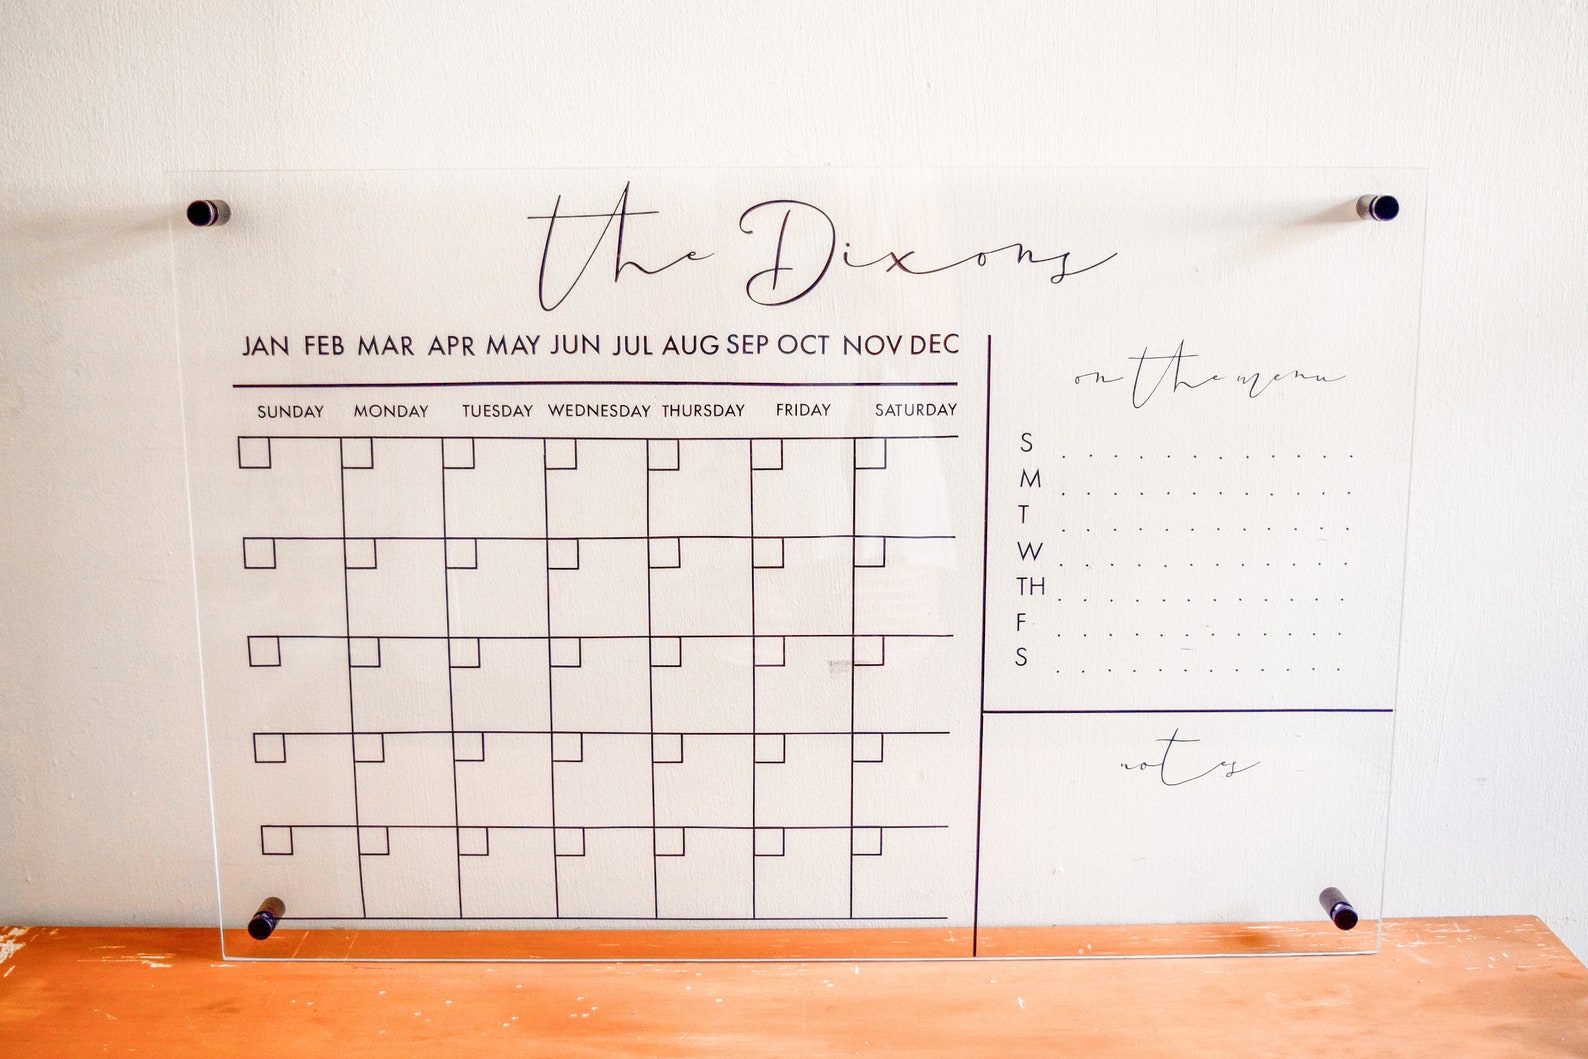 the Dixons
JAN FEB MAR APR MAY JUN JUL AUG SEP OCT NOV DEC
SUNDAY MONDAY TUESDAY WEDNESDAY THURSDAY FRIDAY SATURDAY
on the menu
S
M
T
W
TH
F
S
notes